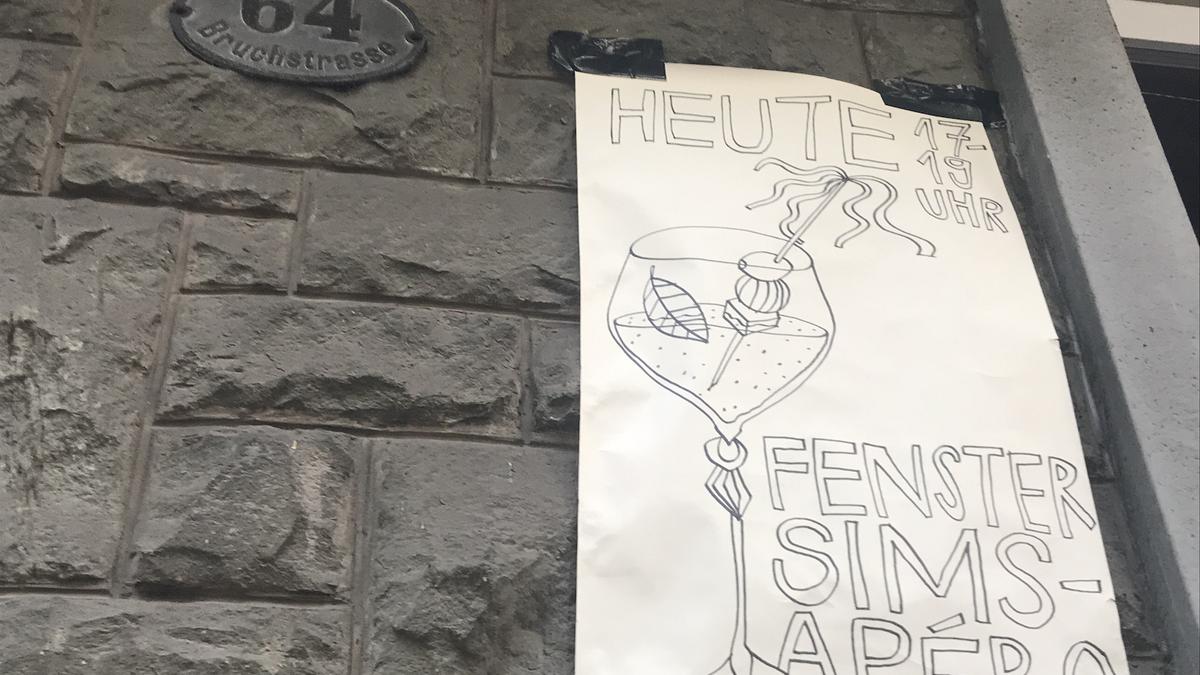 64
Bruchstrasse
HEUTE
17-
19
UHR
FENSTER
SIMS-
APÉRO